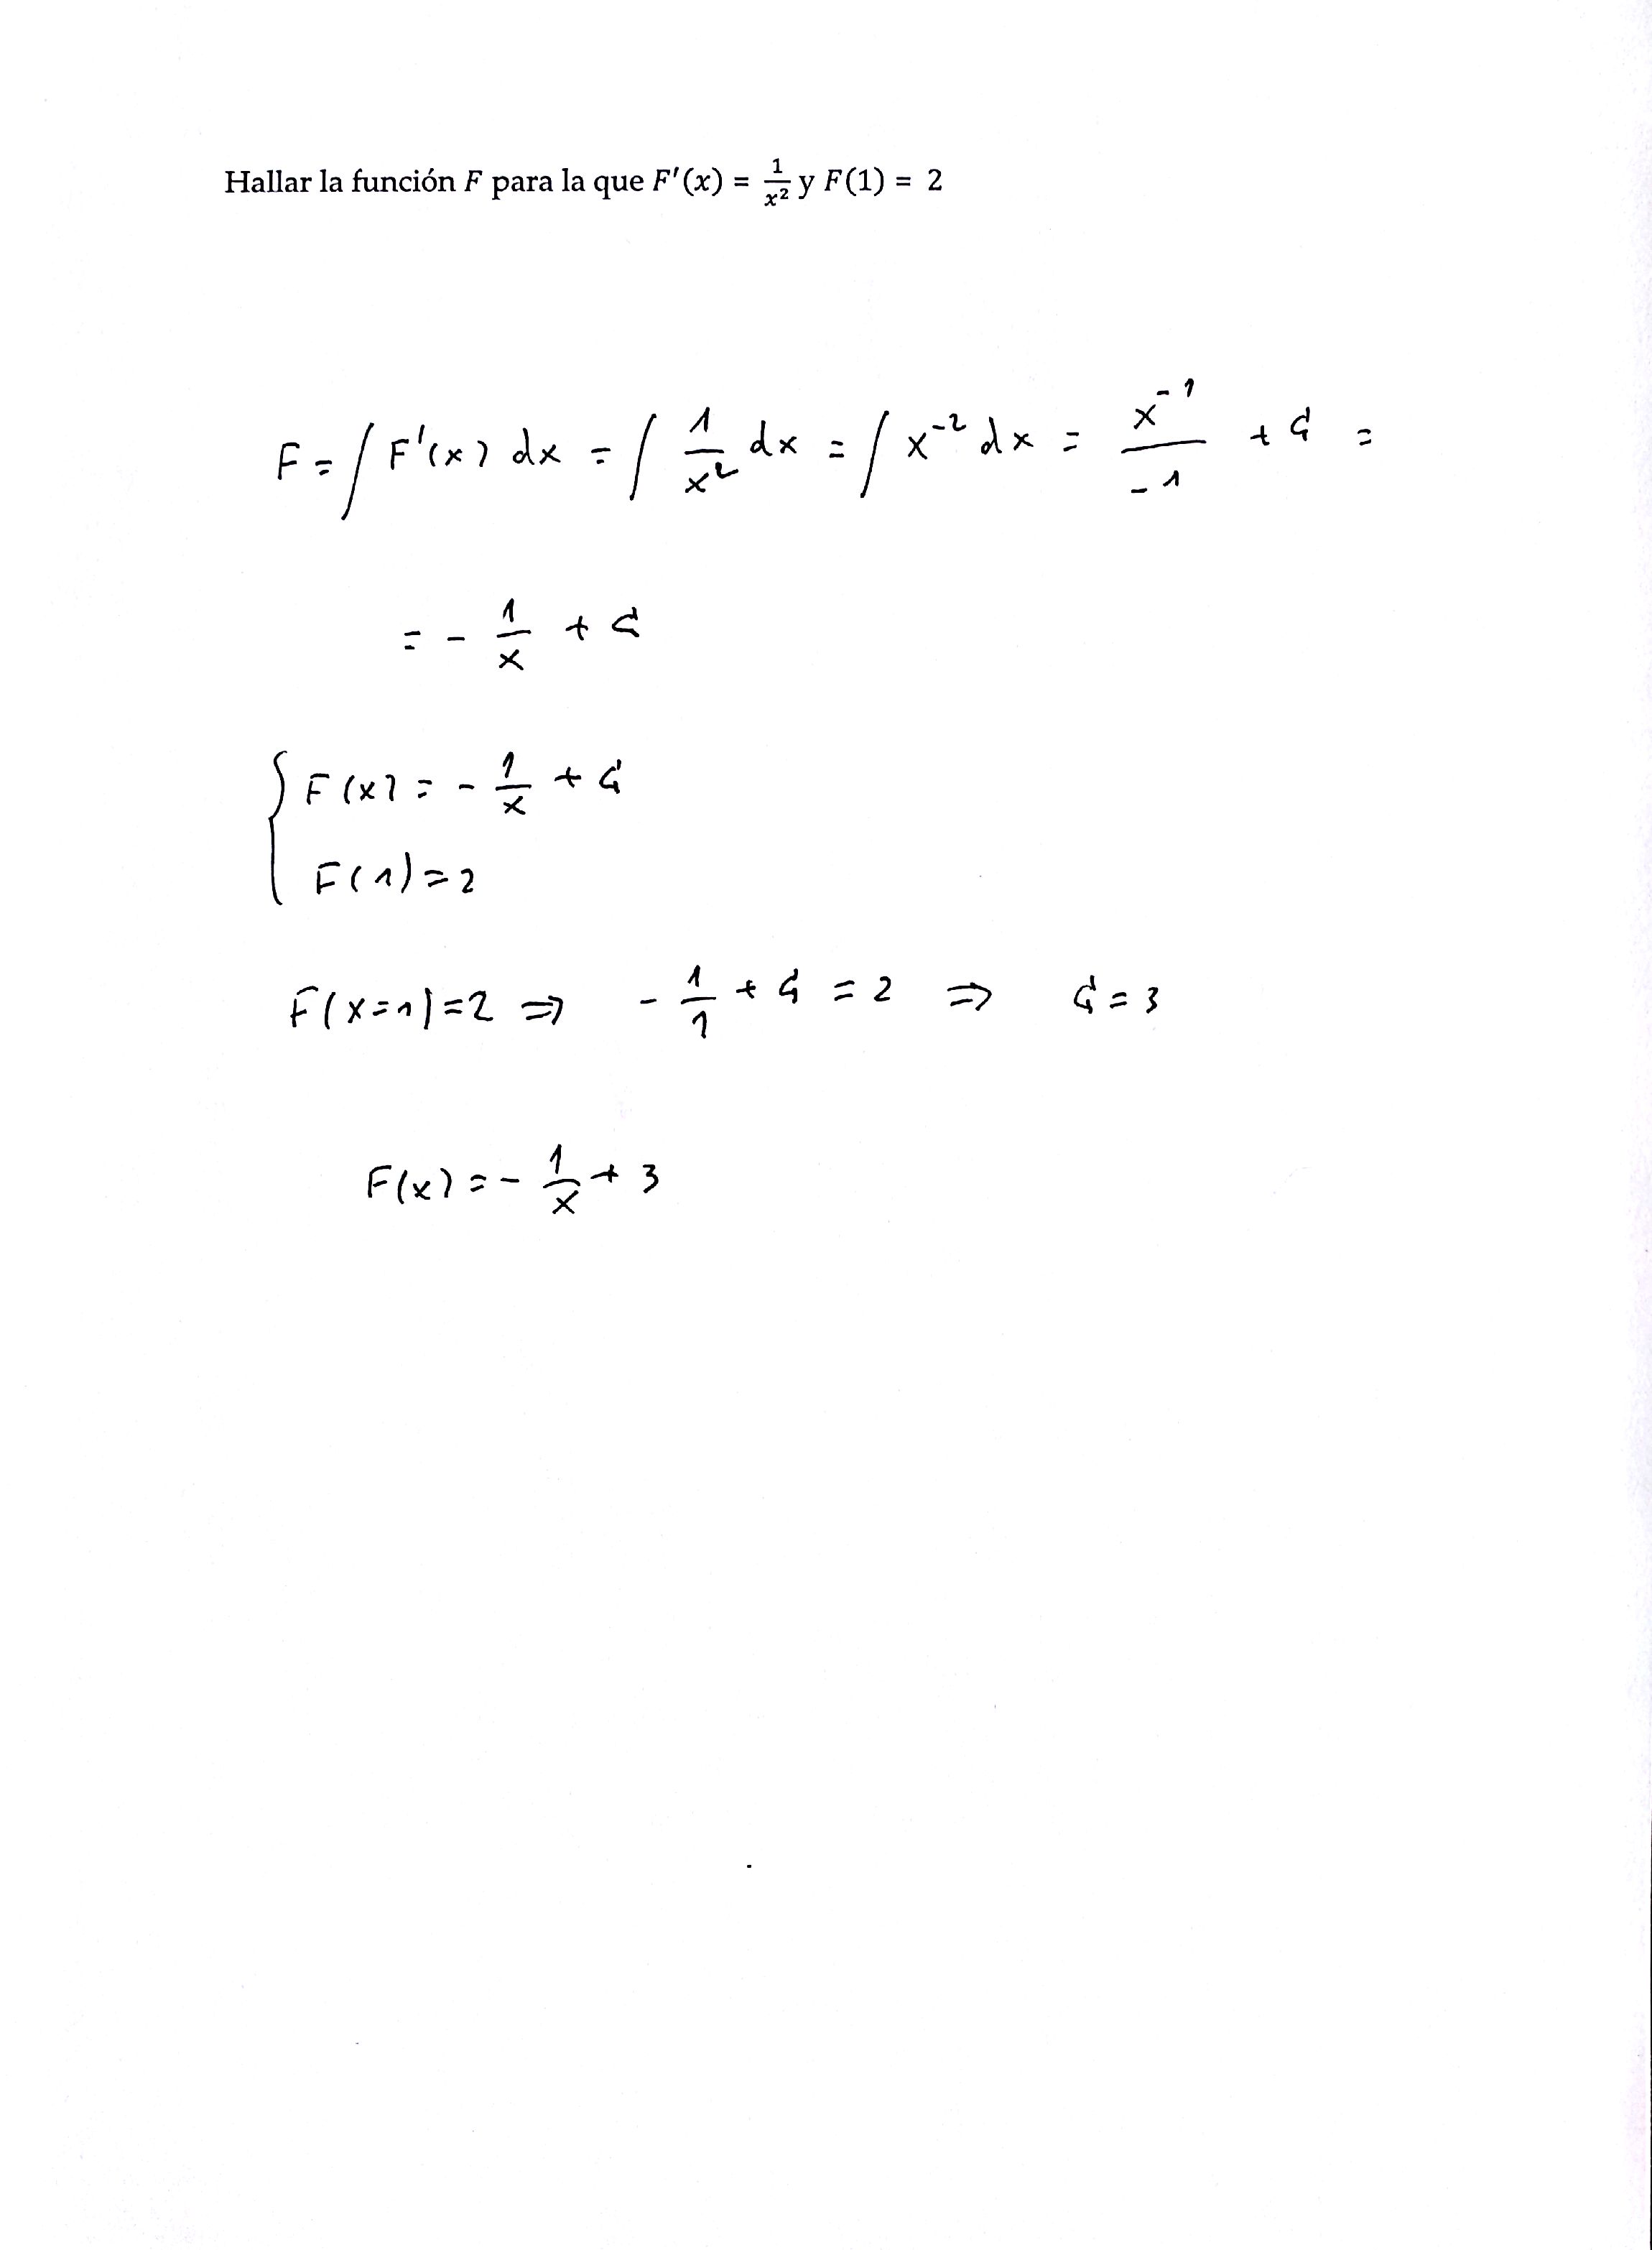 Hallar la función F para la que F'(x) = 1/x² y F(1) = 2
F = ∫ F'(x) dx = ∫ 1/x² dx = ∫ x⁻² dx = x⁻¹/-1 + C =
= - 1/x + C
{ F(x) = - 1/x + C
F(1) = 2
F(x=1) = 2 ⇒ - 1/1 + C = 2 ⇒ C = 3
F(x) = - 1/x + 3